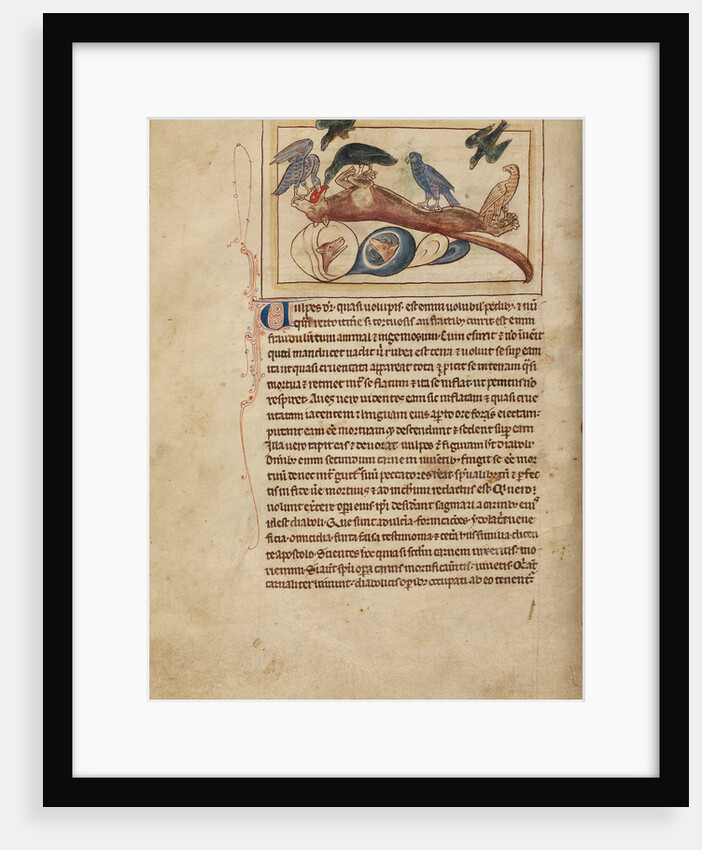 Vulpes dr quasi volupis. est enim volubil' pedib; & nū
qm̄ recto itine s; tortuosis anfractib; currit. est enim
fraudulentum animal & ingeniosum. Cum esurit & nō īuenit
quod manducet vadit u rubea est terra & voluit se sup eam
ita ut quasi cruentata appareat tota & picit se in terram qͣsi
mortua & retinet intͣ se flatum & ita se inflat ut penitus nō
respiret. Aues vero videntes eam sic inflatam & quasi crue
ntatam iacentem & linguam eius apto ore foras eiectam:
putant eam eē mortuam descendunt & sedent sup eam
Illa vero rapit eas & deuorat. vulpes figuram ht diaboli.
Omib; enim secundum carnem uiuentib; fingit se eē mor
tuū
peccatores spualib; & pfec
tis in fide ūe mortuus & ad redactus est. Qui vero
volunt opa eius ipi desidant sagmari carnib; eius
id est diaboli. Que sunt adulteria. fornicatiōes. ydolatͥe uene
ficia. omicidia. furta. falsa testimonia & cetera hiis similia. dicen
te apostolo. Scientes hoc quia si scdm carnem uixeritis. mo
riemini. Si aut spu opa carnis mortificaueritis. uiuetis. Qui aut
carnaliter uiuunt. diabolicis opib; occupati ab eo tenent